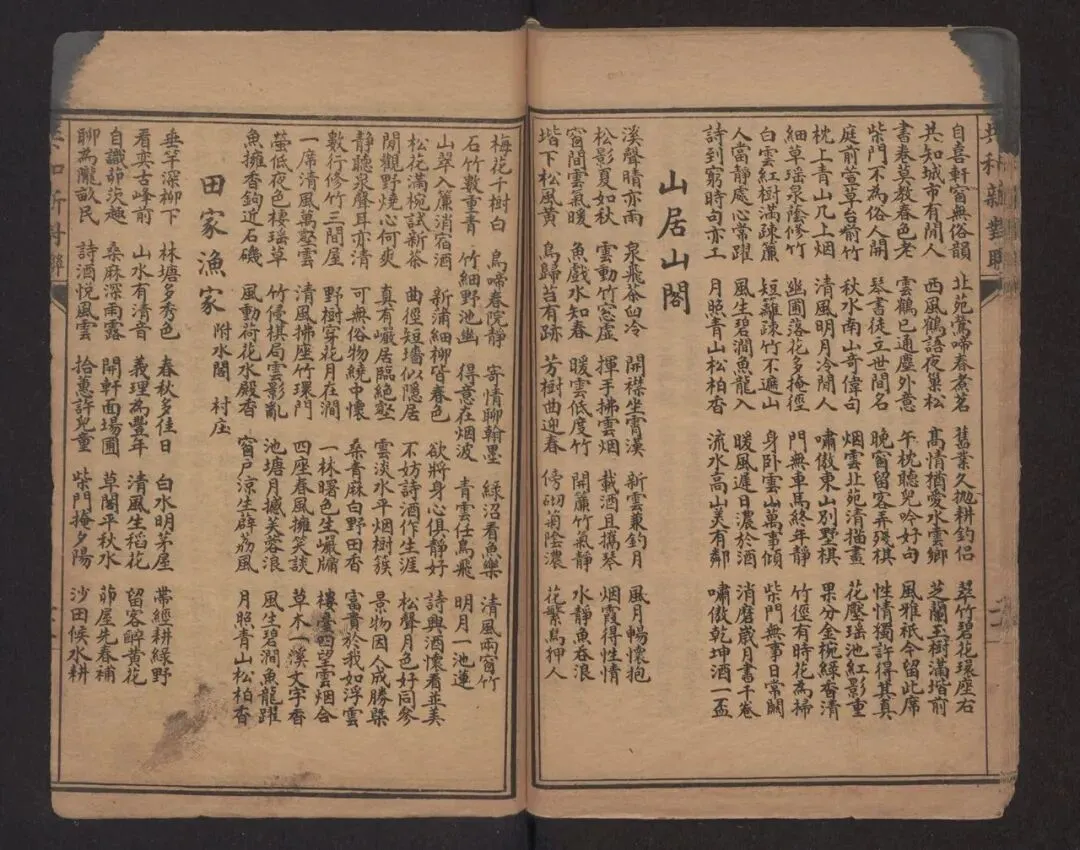 共和新對聯
自喜軒窗無俗韻 北苑鶯啼春煮茗 舊業久拋耕釣侶 翠竹碧花環座右
共知城市有閒人 西風鶴語夜巢松 高情猶愛水雲鄉 芝蘭玉樹滿堦前
書卷莫教春色老 雲鶴已通塵外意 午枕聽兒吟好句 風雅祇今留此席
柴門不為俗人開 琴書徒立世間名 晚窗留客弄殘棋 性情獨許得其真
庭前芳草台前竹 秋水南山奇偉句 烟雲北苑清描畫 花壓瑶池紅影重
枕上青山几上烟 清風明月冷閒人 嘯傲東山別墅棋 果分金椀綠香清
細草瑶泉蔭修竹 幽圃落花多掩徑 門無車馬終年靜 竹徑有時花為掃
白雲紅樹滿疎簾 短籬疎竹不遮山 身卧雲山萬事傾 柴門無事日常關
人當靜處心常躍 風生碧澗魚龍入 暖風遲日濃於酒 消磨歲月書千卷
詩到窮時句亦工 月照青山松柏香 流水高山美有鄰 嘯傲乾坤酒一盃
山居山閣
溪聲晴亦雨 泉飛茶臼冷 開襟坐霄漢 新雲兼釣月 風月暢懷抱
松影夏如秋 雲動竹窓虛 揮手拂雲烟 載酒且攜琴 烟霞得性情
窗間雲氣暖 魚戲水知春 暖雲低度竹 開簾竹氣靜 水靜魚吞浪
堦下松風黄 鳥歸苔有跡 芳樹曲迎春 傍砌菊陰濃 花繁鳥狎人
梅花千樹白 鳥啼春院靜 寄情聊翰墨 綠沼看魚樂 清風兩窗竹
石竹數重青 竹細野池幽 得意在烟波 青雲任鳥飛 明月一池蓮
山翠入簾消宿酒 新蒲細柳皆春色 欲將身心俱靜好 詩興酒懷看並美
松花滿椀試新茶 曲徑短墻似隱居 不妨詩酒作生涯 松聲月色好同參
閒觀野燒心何爽 真有巖居臨絕壑 雲淡水平烟樹簇 景物因人成勝槩
靜聽泉聲耳亦清 可無俗物繞中懷 桑青麻白野田香 富貴於我如浮雲
數行修竹三間屋 野樹穿花月在澗 一林曙色生巖牖 樓臺四望雲烟合
一席清風萬壑雲 清風拂座竹環門 四座春風擁笑談 草木一溪文字香
螢低夜色棲瑶草 竹侵棋局雲影亂 池塘月撼芙蓉浪 風生碧澗魚龍躍
魚擁香鉤近石磯 風動荷花水殿香 窗戶涼生薜荔風 月照青山松柏香
田家漁家 附水閣 村庄
垂竿深柳下 林塘多秀色 春秋多佳日 白水明茅屋 帶經耕綠野
看奕古峰前 山水有清音 義理為豐年 清風生稻花 留客醉黃花
自識茆茨趣 桑麻深雨露 開軒面場圃 草閣平秋水 茆屋先春補
聊為隴畝民 詩酒悅風雲 拾蕙許兒童 柴門掩夕陽 沙田候水耕
共和新對聯